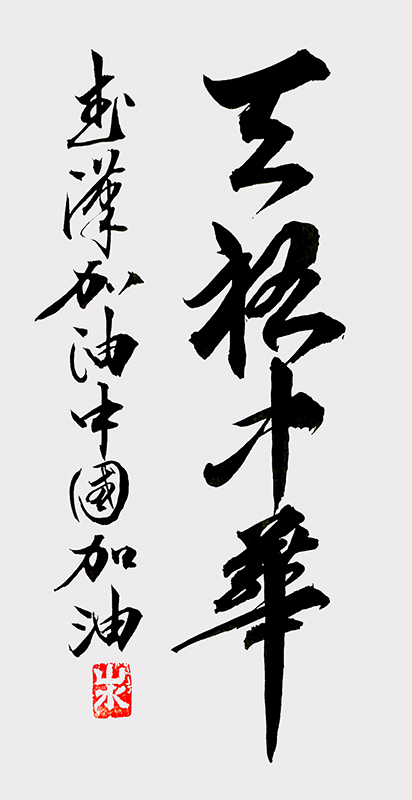 天祐中華
武漢加油中國加油